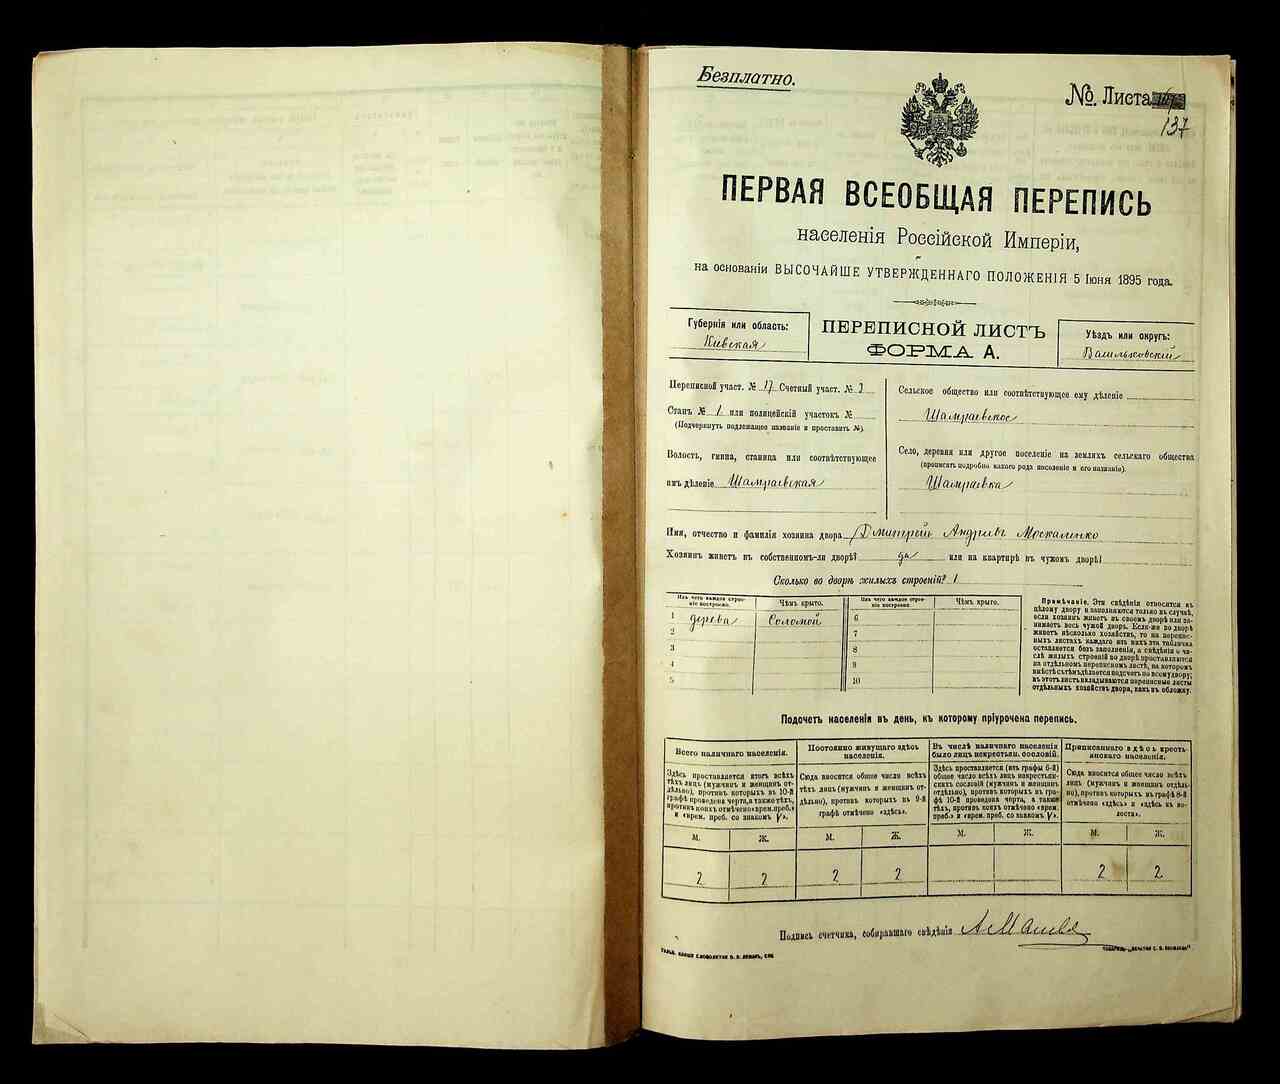 Безплатно.
№ Листа
137
ПЕРВАЯ ВСЕОБЩАЯ ПЕРЕПИСЬ
населенія Россійской Имперіи,
на основаніи ВЫСОЧАЙШЕ УТВЕРЖДЕННАГО ПОЛОЖЕНІЯ 5 Іюня 1895 года.
Губернія или область:
Кіевская
ПЕРЕПИСНОЙ ЛИСТЪ
ФОРМА А.
Уѣздъ или округъ:
Васильковскій
Переписной участ. № 17 Счетный участ. № 2
Станъ № 1 или полицейскій участокъ №
(Подчеркнуть подлежащее названіе и проставить №).
Волость, гмина, станица или соотвѣтствующее
имъ дѣленіе Шамраевская
Сельское общество или соотвѣтствующее ему дѣленіе
Шамраевское
Село, деревня или другое поселеніе на земляхъ сельскаго общества
(прописать подробно какого рода поселеніе и его названіе).
Шамраевка
Имя, отчество и фамилія хозяина двора Дмитрій Андріевъ Москаленко
Хозяинъ живетъ въ собственномъ-ли дворѣ? да или на квартирѣ въ чужомъ дворѣ?
Сколько во дворѣ жилыхъ строеній? 1
Изъ чего каждое строе-
ніе построено.
Чѣмъ крыто.
Изъ чего каждое строе-
ніе построено.
Чѣмъ крыто.
1 дерева Соломой 6
2 7
3 8
4 9
5 10
Примѣчаніе. Эти свѣдѣнія относятся къ
цѣлому двору и заполняются только въ случаѣ,
если хозяинъ живетъ въ своемъ дворѣ или за-
нимаетъ весь чужой дворъ. Если-же во дворѣ
живетъ нѣсколько хозяйствъ, то на перепис-
ныхъ листахъ каждаго изъ нихъ эта табличка
оставляется безъ заполненія, а свѣдѣнія о чи-
слѣ жилыхъ строеній во дворѣ проставляются
на отдѣльномъ переписномъ листѣ, на которомъ
вмѣстѣ съ тѣмъ дѣлается подсчетъ по всему двору;
въ этотъ листъ вкладываются переписные листы
отдѣльныхъ хозяйствъ двора, какъ въ обложку.
Подсчетъ населенія въ день, къ которому пріурочена перепись.
Всего наличнаго населенія.
Здѣсь проставляется итогъ всѣхъ
тѣхъ лицъ (мужчинъ и женщинъ от-
дѣльно), противъ которыхъ въ 10-й
графѣ проведена черта, а также тѣхъ,
противъ коихъ отмѣчено «врем. преб.»
и «врем. преб. со знакомъ V».
Постоянно живущаго здѣсь
населенія.
Сюда вносится общее число всѣхъ
тѣхъ лицъ (мужчинъ и женщинъ от-
дѣльно), противъ которыхъ въ 9-й
графѣ отмѣчено «здѣсь».
Въ числѣ наличнаго населенія
было лицъ некрестьян. сословій.
Здѣсь проставляется (изъ графы 6-й)
общее число всѣхъ лицъ некрестьян-
скихъ сословій (мужчинъ и женщинъ
отдѣльно), противъ которыхъ въ гра-
фѣ 10-й проведена черта, а также
тѣхъ, противъ коихъ отмѣчено «врем.
преб.» и «врем. преб. со знакомъ V».
Приписаннаго здѣсь кресть-
янскаго населенія.
Сюда вносится общее число всѣхъ
лицъ (мужчинъ и женщинъ отдѣль-
но), противъ которыхъ въ графѣ 8-й
отмѣчено «здѣсь» и «здѣсь въ во-
лости».
М. Ж. М. Ж. М. Ж. М. Ж.
2 2 2 2 2 2
Подпись счетчика, собиравшаго свѣдѣнія